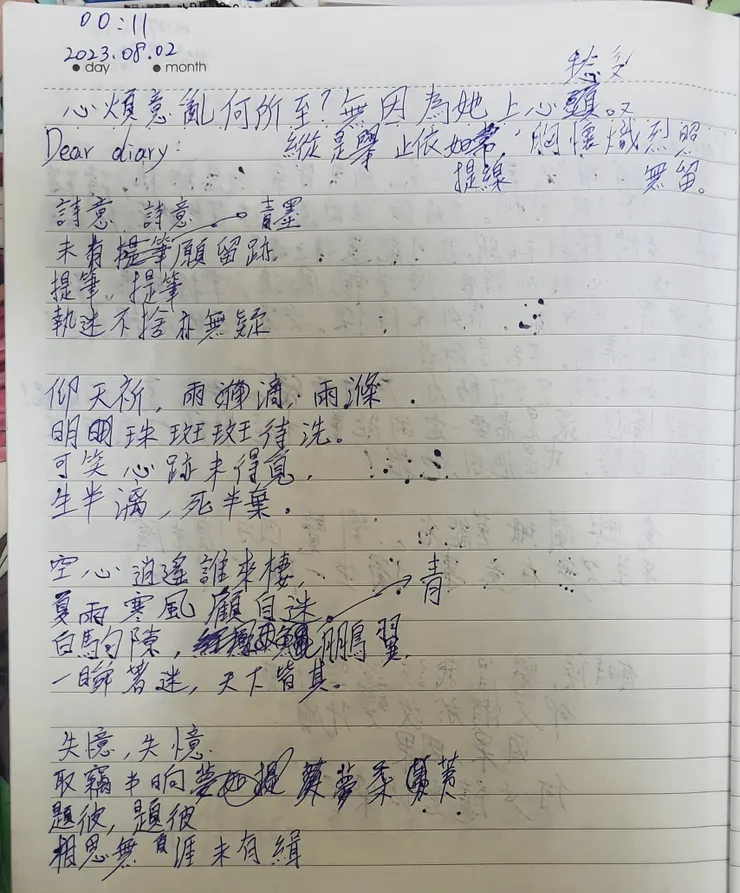 00:11
2023.08.02
day month
心煩意亂何所至?無因為她上心頭。
Dear diary: 縱是舉止依如常,胸懷熾烈照
提線 無留。
詩意,詩意 青墨
未有提筆願留跡
提筆,提筆
執迷不捨亦無疑
仰天祈,雨滴,雨滌
明明珠斑斑待洗。
可笑心跡未得覓,
生半漓,死半棄。
空心逍遙誰來棲,
夏雨寒風顧自迷 青
白駒隙, 鵬翼
一瞬著迷,天下皆其。
失憶,失憶
取竊半晌 夢柔荑
題彼,題彼
相思無涯未有緝